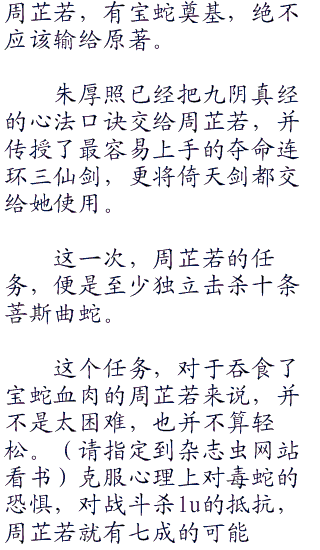 周芷若，有宝蛇奠基，绝不
应该输给原著。
朱厚照已经把九阴真经
的心法口诀交给周芷若，并
传授了最容易上手的夺命连
环三仙剑，更将倚天剑都交
给她使用。
这一次，周芷若的任
务，便是至少独立击杀十条
菩斯曲蛇。
这个任务，对于吞食了
宝蛇血肉的周芷若来说，并
不是太困难，也并不算轻
松。（请指定到杂志虫网站
看书）克服心理上对毒蛇的
恐惧，对战斗杀1u的抵抗，
周芷若就有七成的可能